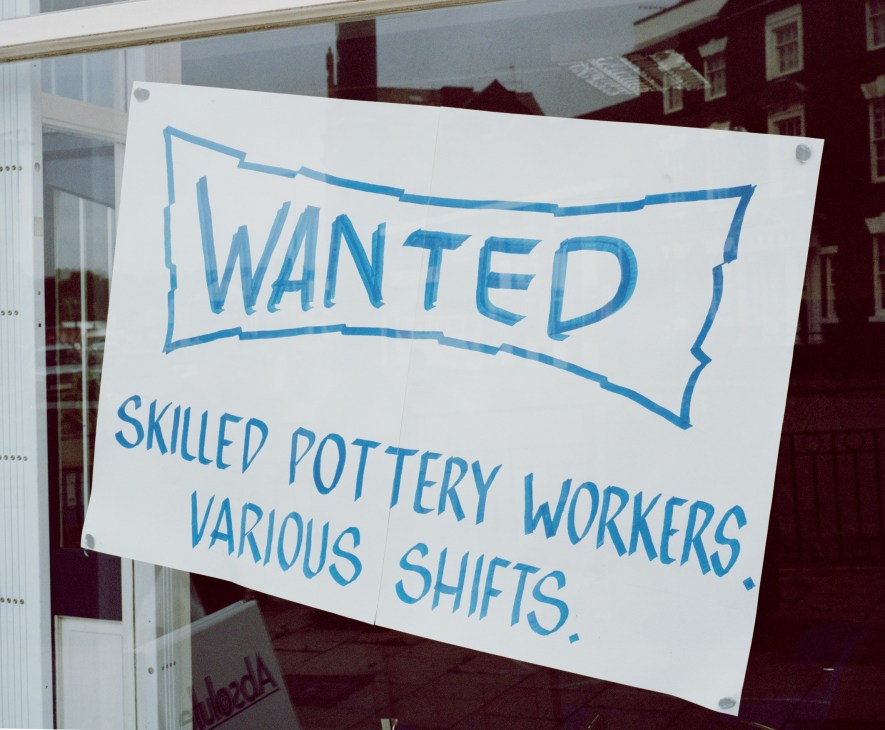 WANTED
SKILLED POTTERY WORKERS.
VARIOUS SHIFTS.
Absolute